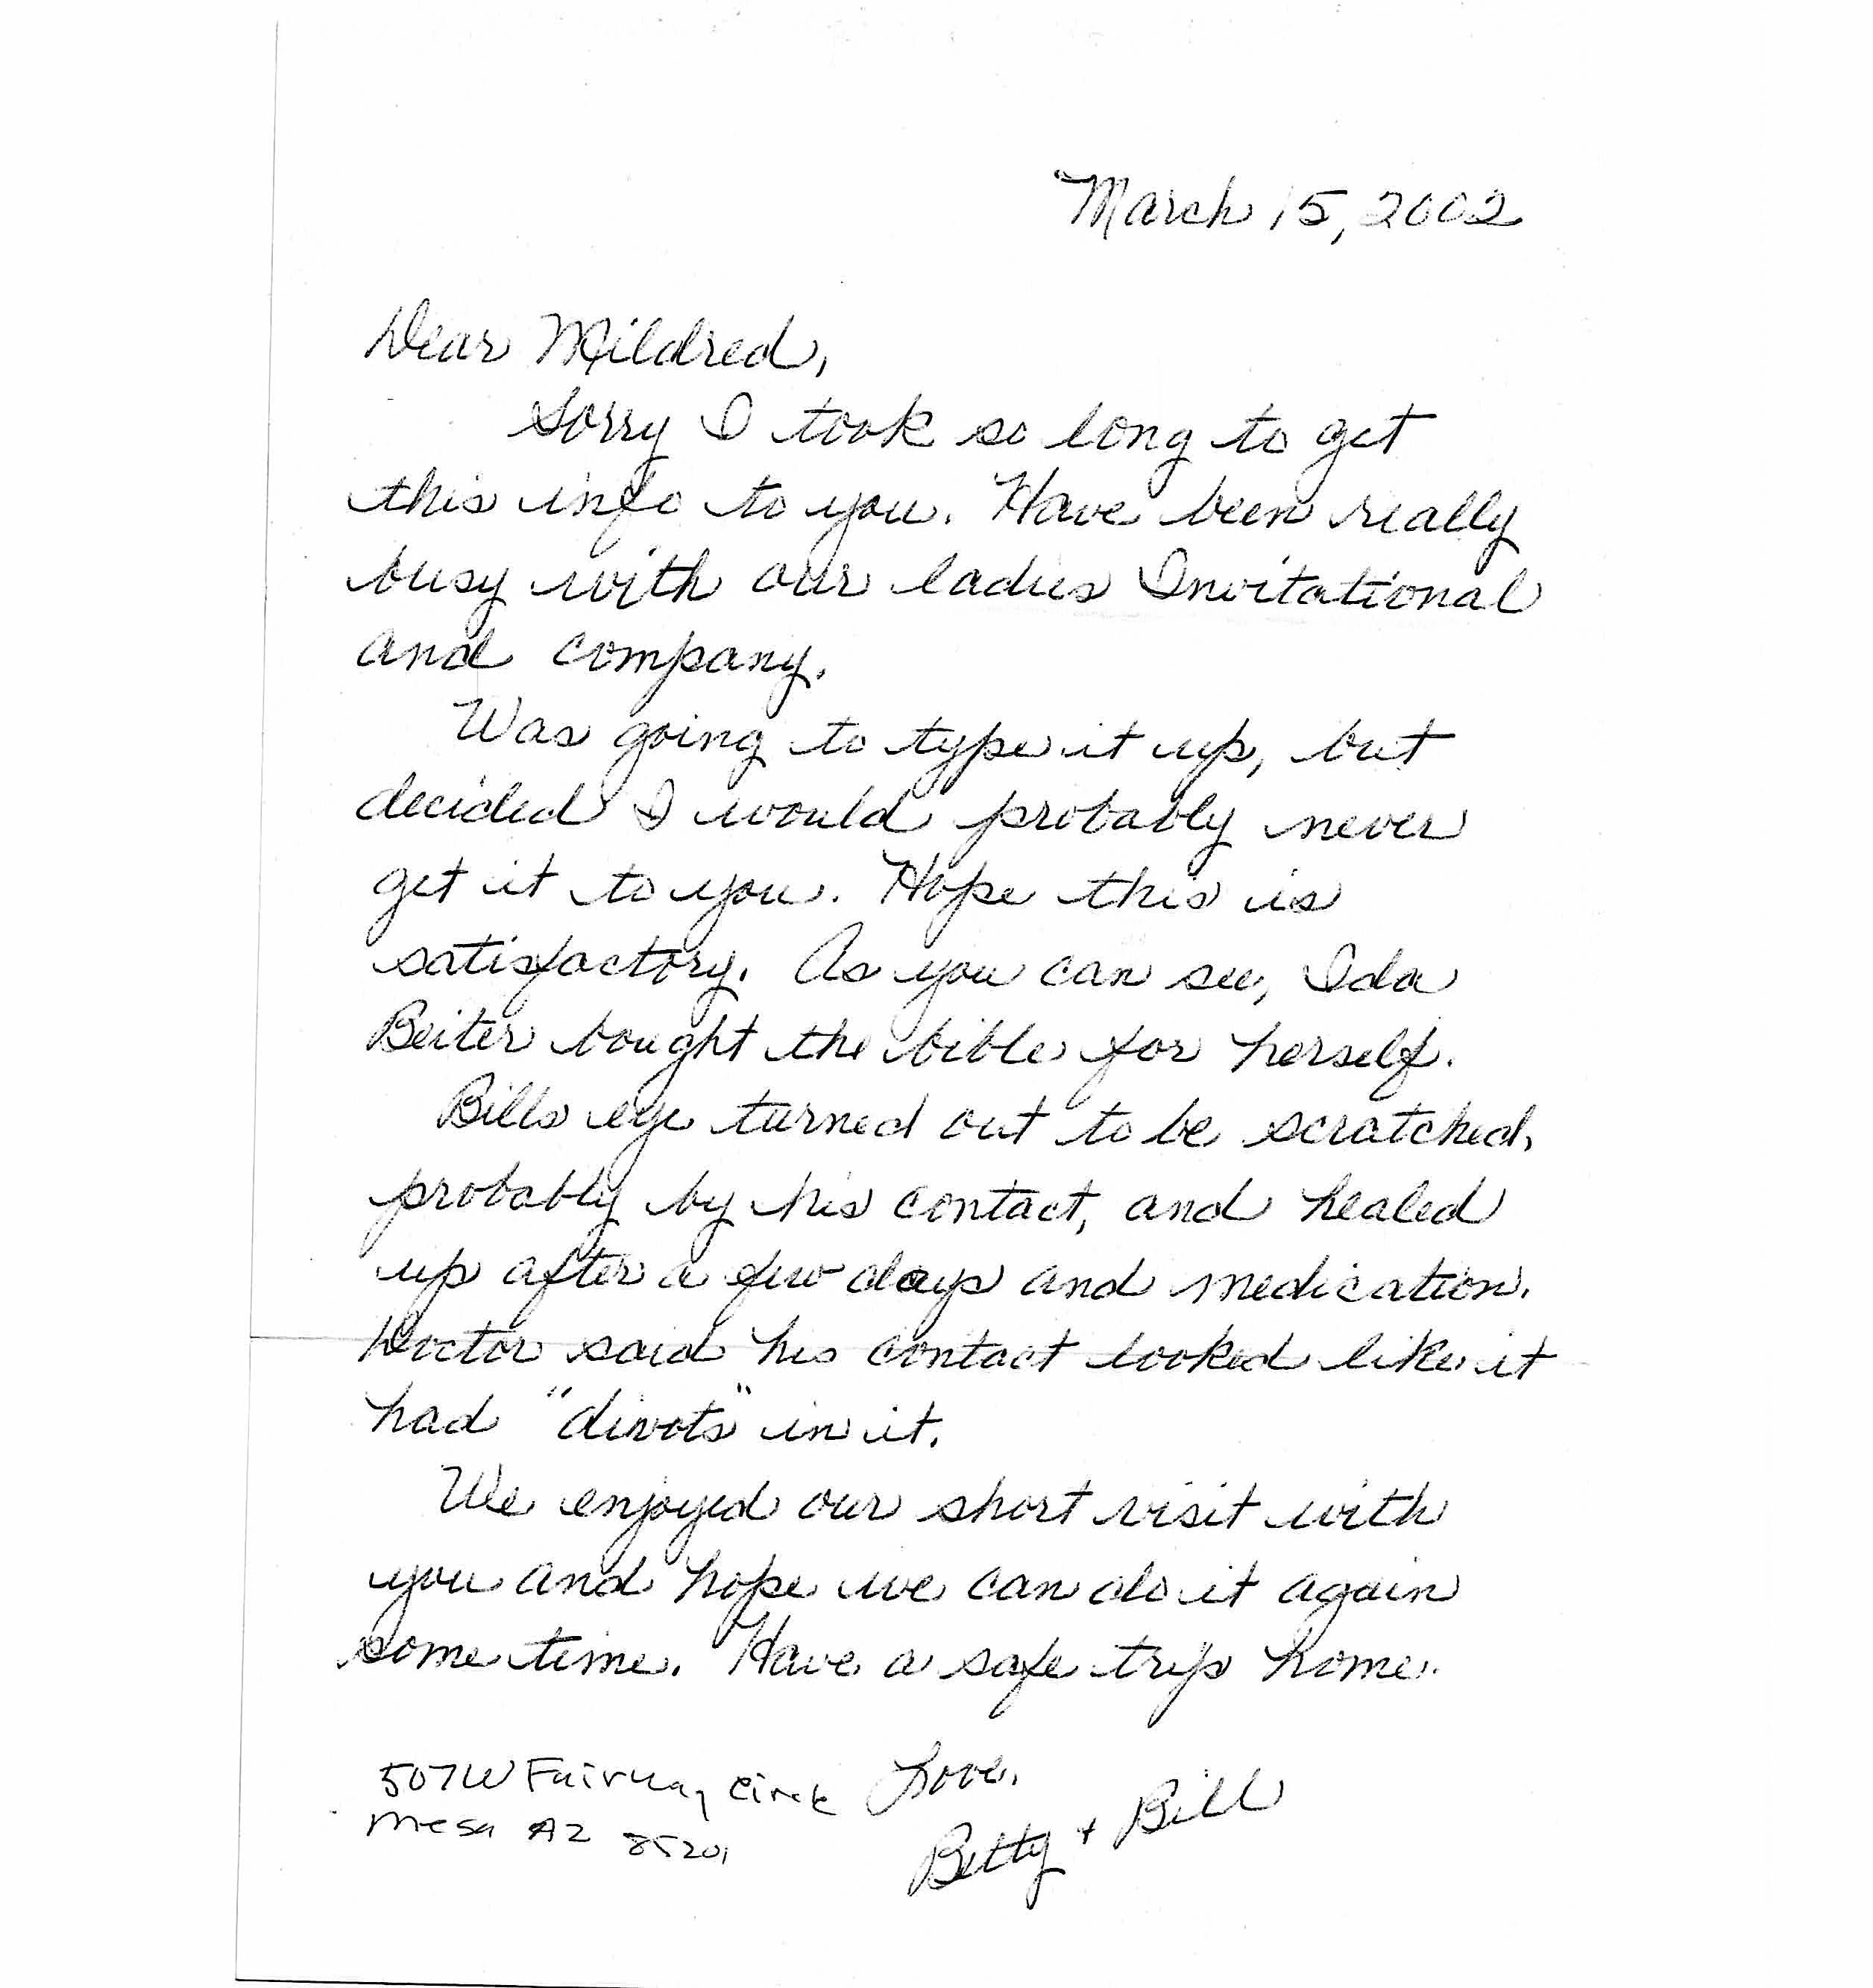 March 15, 2002
Dear Mildred,
Sorry I took so long to get
this info to you. Have been really
busy with our ladies Invitational
and company.
Was going to type it up, but
decided I would probably never
get it to you. Hope this is
satisfactory. As you can see, Ida
Beiter bought the bible for herself.
Bills eye turned out to be scratched,
probably by his contact, and healed
up after a few days and medication.
Doctor said his contact looked like it
had "divots" in it.
We enjoyed our short visit with
you and hope we can do it again
some time. Have a safe trip home.
Love,
Betty + Bill
507 W Fairway Circle
Mesa AZ 85201